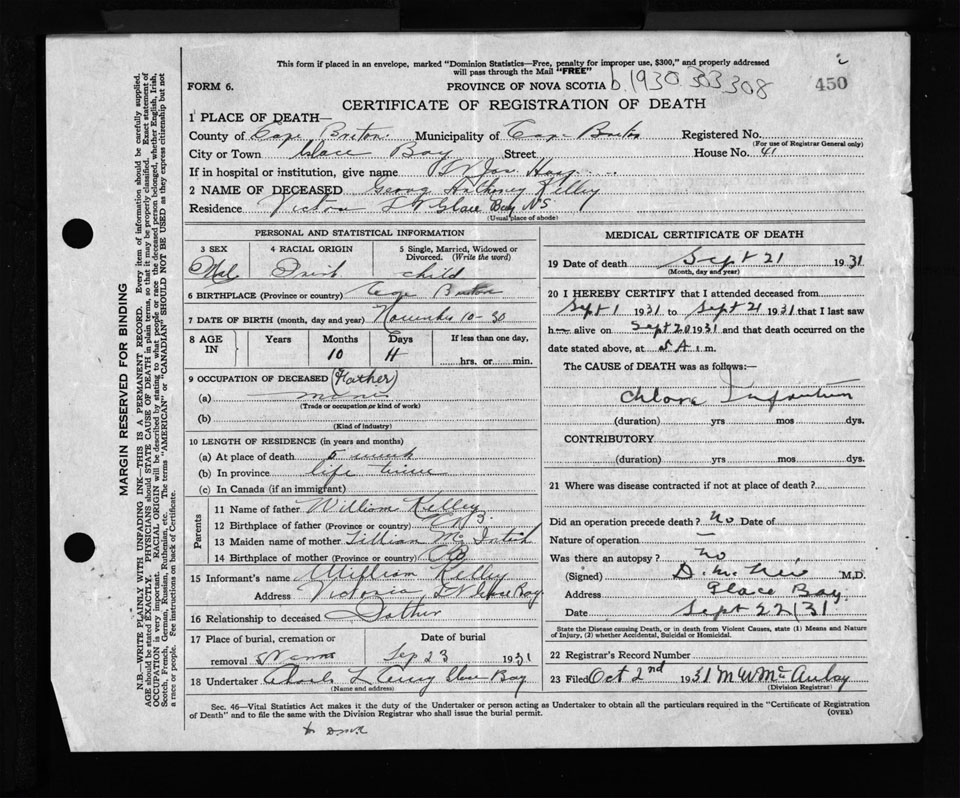 This form if placed in an envelope, marked "Dominion Statistics—Free, penalty for improper use, $300," and properly addressed
will pass through the Mail "FREE"
FORM 6.
PROVINCE OF NOVA SCOTIA b.1930 303308
450
CERTIFICATE OF REGISTRATION OF DEATH
1 PLACE OF DEATH—
County of Cape Breton Municipality of Cape Breton Registered No.
(For use of Registrar General only)
City or Town Glace Bay Street House No. 41
If in hospital or institution, give name
2 NAME OF DECEASED George Anthony Kelley
Residence Victoria Glace Bay NS
(Usual place of abode)
PERSONAL AND STATISTICAL INFORMATION
3 SEX 4 RACIAL ORIGIN 5 Single, Married, Widowed or
Divorced. (Write the word)
Male Irish child
6 BIRTHPLACE (Province or country) Cape Breton
7 DATE OF BIRTH (month, day and year) November 10-30
8 AGE IN Years Months Days If less than one day,
10 11 hrs. or min.
9 OCCUPATION OF DECEASED (Father)
(a) miner
(Trade or occupation or kind of work)
(b)
(Kind of industry)
10 LENGTH OF RESIDENCE (in years and months)
(a) At place of death 5
(b) In province life time
(c) In Canada (if an immigrant)
Parents
11 Name of father William Kelley
12 Birthplace of father (Province or country) C B.
13 Maiden name of mother Lillian Mc Intosh
14 Birthplace of mother (Province or country) CB
15 Informant's name William Kelley
Address Victoria Glace Bay
16 Relationship to deceased Father
17 Place of burial, cremation or Date of burial
removal Sep 23 1931
18 Undertaker Charles L Curry Glace Bay
(Name and address)
MEDICAL CERTIFICATE OF DEATH
19 Date of death Sept 21 1931
(Month, day and year)
20 I HEREBY CERTIFY that I attended deceased from
Sept 1 1931 to Sept 21 1931 that I last saw
h alive on Sept 20 1931 and that death occurred on the
date stated above, at 5 A. m.
The CAUSE of DEATH was as follows:—
Cholera Infantum
(duration) yrs mos dys.
CONTRIBUTORY
(duration) yrs mos dys.
21 Where was disease contracted if not at place of death?
Did an operation precede death? no Date of
Nature of operation —
Was there an autopsy? no
(Signed) M.D.
Address Glace Bay
Date Sept 22/31
State the Disease causing Death, or in death from Violent Causes, state (1) Means and Nature
of Injury, (2) whether Accidental, Suicidal or Homicidal.
22 Registrar's Record Number
23 Filed Oct 2nd 1931
(Division Registrar)
Sec. 46—Vital Statistics Act makes it the duty of the Undertaker or person acting as Undertaker to obtain all the particulars required in the "Certificate of Registration
of Death" and to file the same with the Division Registrar who shall issue the burial permit.
(OVER)
MARGIN RESERVED FOR BINDING
N.B.—WRITE PLAINLY WITH UNFADING INK—THIS IS A PERMANENT RECORD. Every item of information should be carefully supplied.
AGE should be stated EXACTLY. PHYSICIANS should STATE CAUSE OF DEATH in plain terms, so that it may be properly classified. Exact statement of
OCCUPATION is very important. RACIAL ORIGIN will be described by stating to what people or race the deceased person belonged, whether English, Irish,
Scotch, French, German, Russian, Ruthenian, etc. The terms "AMERICAN" or "CANADIAN" SHOULD NOT BE USED as they express citizenship but not
a race or people. Fee instructions on back of Certificate.